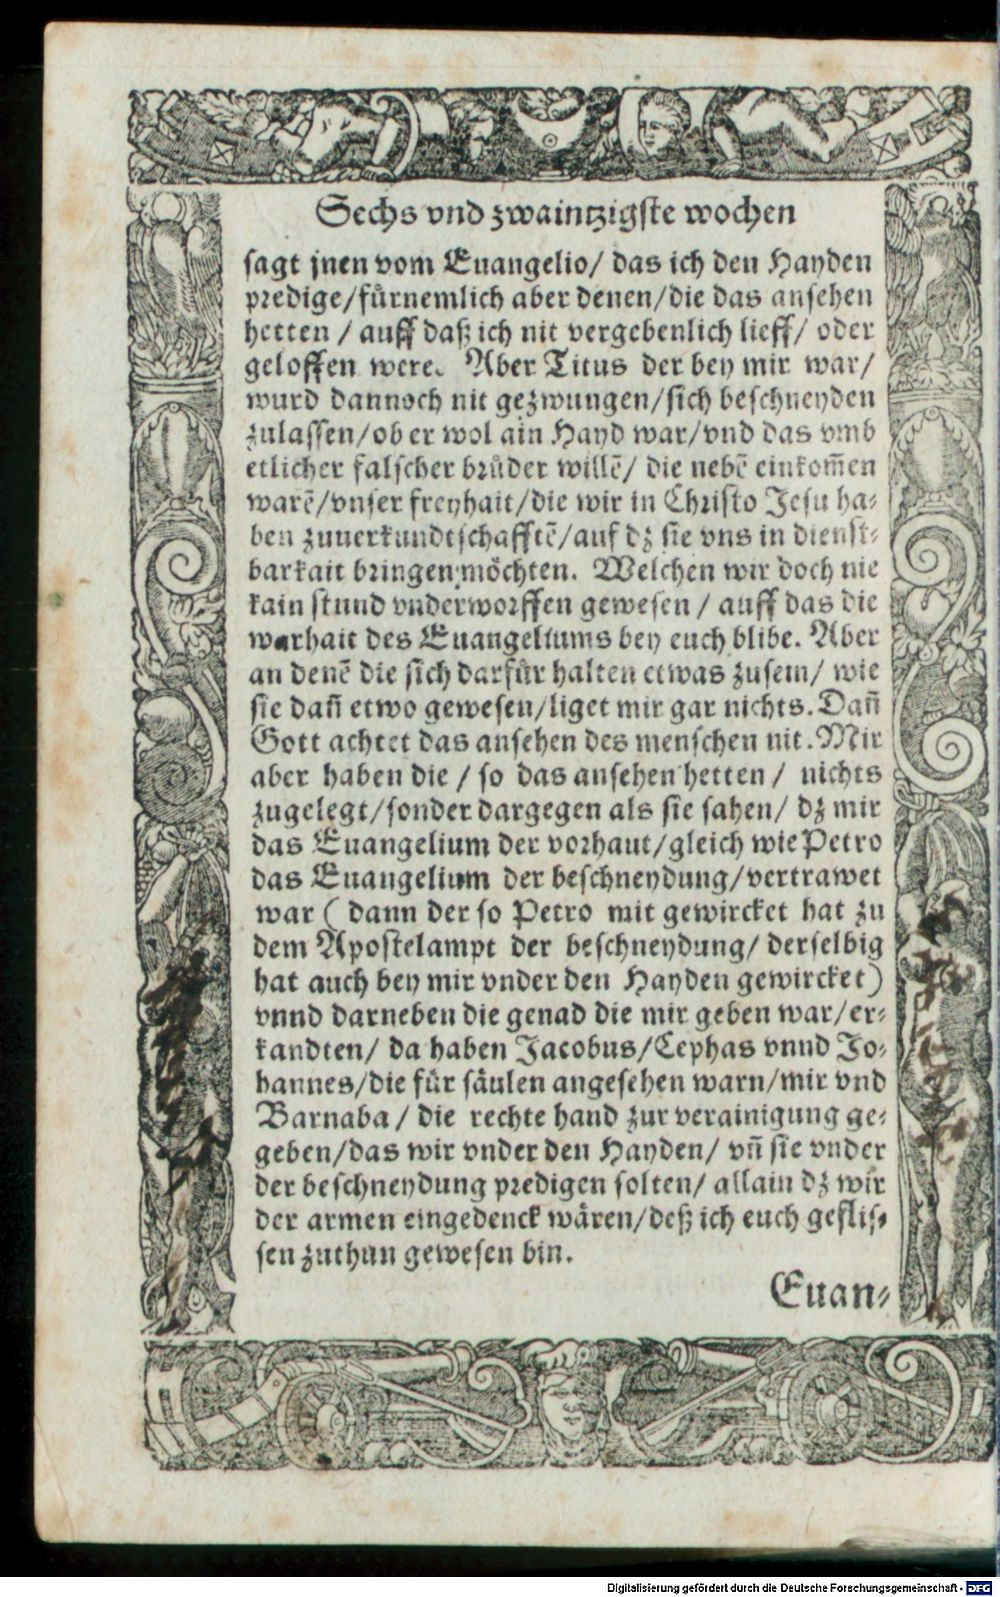 Sechs vnd zwaintzigste wochen
sagt jnen vom Euangelio/ das ich den Hayden
predige/fürnemlich aber denen/die das ansehen
hetten / auff daß ich nit vergebenlich lieff/ oder
geloffen were. Aber Titus der bey mir war/
wurd dannoch nit gezwungen/sich beschneyden
zulassen/ob er wol ain Hayd war/vnd das vmb
etlicher falscher brůder willē/ die nebē einkom̄en
warē/vnser freyhait/die wir in Christo Jesu ha⸗
ben zuuerkundtschafftē/auf dz sie vns in dienst⸗
barkait bringen möchten. Welchen wir doch nie
kain stund vnderworffen gewesen / auff das die
warhait des Euangeliums bey euch blibe. Aber
an denē die sich darfür halten etwas zusein/ wie
sie dañ etwo gewesen/liget mir gar nichts. Dañ
Gott achtet das ansehen des menschen nit. Mir
aber haben die / so das ansehen hetten / nichts
zugelegt/sonder dargegen als sie sahen/ dz mir
das Euangelium der vorhaut/gleich wie Petro
das Euangelium der beschneydung/vertrawet
war ( dann der so Petro mit gewircket hat zu
dem Apostelampt der beschneydung/ derselbig
hat auch bey mir vnder den Hayden gewircket)
vnnd darneben die genad die mir geben war/er⸗
kandten/ da haben Jacobus/Cephas vnnd Jo⸗
hannes/die für säulen angesehen warn/mir vnd
Barnaba / die rechte hand zur verainigung ge⸗
geben/das wir vnder den Hayden/ vñ sie vnder
der beschneydung predigen solten/ allain dz wir
der armen eingedenck wären/deß ich euch geflis⸗
sen zuthun gewesen bin.
Euan⸗
Digitalisierung gefördert durch die Deutsche Forschungsgemeinschaft - DFG